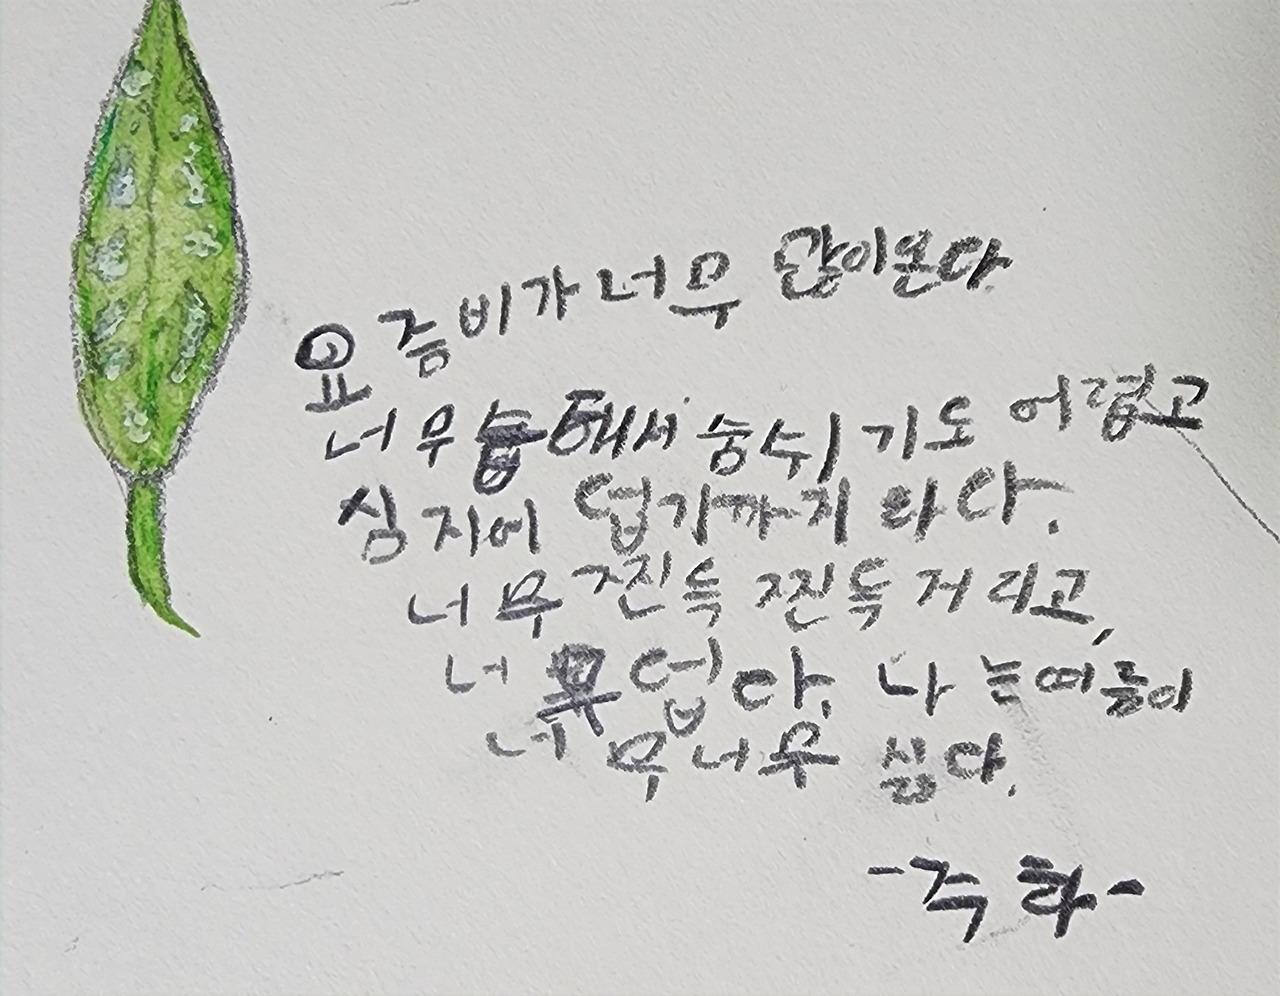 요즘비가너무 많이온다
너무습해서숨쉬기도 어렵고
심지에 덥기까지 하다.
너무 찐득 찐득 거리고,
너무덥다. 나는여름이
너무너무 싫다.
-주화-